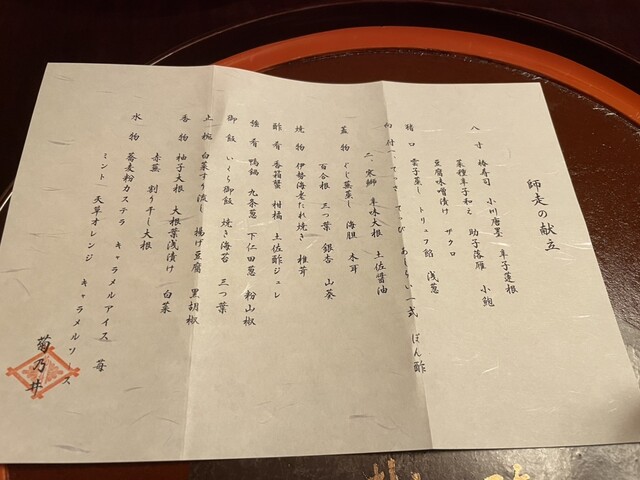 師走の献立
八寸 椿寿司 小川唐墨 辛子蓮根
菜種辛子和え 助子落雁 小鮑
豆腐味噌漬け ザクロ
猪口 雲子蒸し トリュフ餡 浅葱
向付 一、てっさ てっぴ あしらい一式 ぽん酢
二、寒鰤 辛味大根 土佐醤油
蓋物 ぐじ蕪蒸し 海胆 木耳
百合根 三つ葉 銀杏 山葵
焼物 伊勢海老たれ焼き 椎茸
酢肴 香箱蟹 柑橘 土佐酢ジュレ
強肴 鴨鍋 九条葱 下仁田葱 粉山椒
御飯 いくら御飯 焼き海苔 三つ葉
止椀 白菜すり流し 揚げ豆腐 黒胡椒
香物 柚子大根 大根葉浅漬け 白菜
赤蕪 割り干し大根
水物 蕎麦粉カステラ キャラメルアイス 苺
ミント 天草オレンジ キャラメルソース
菊乃井